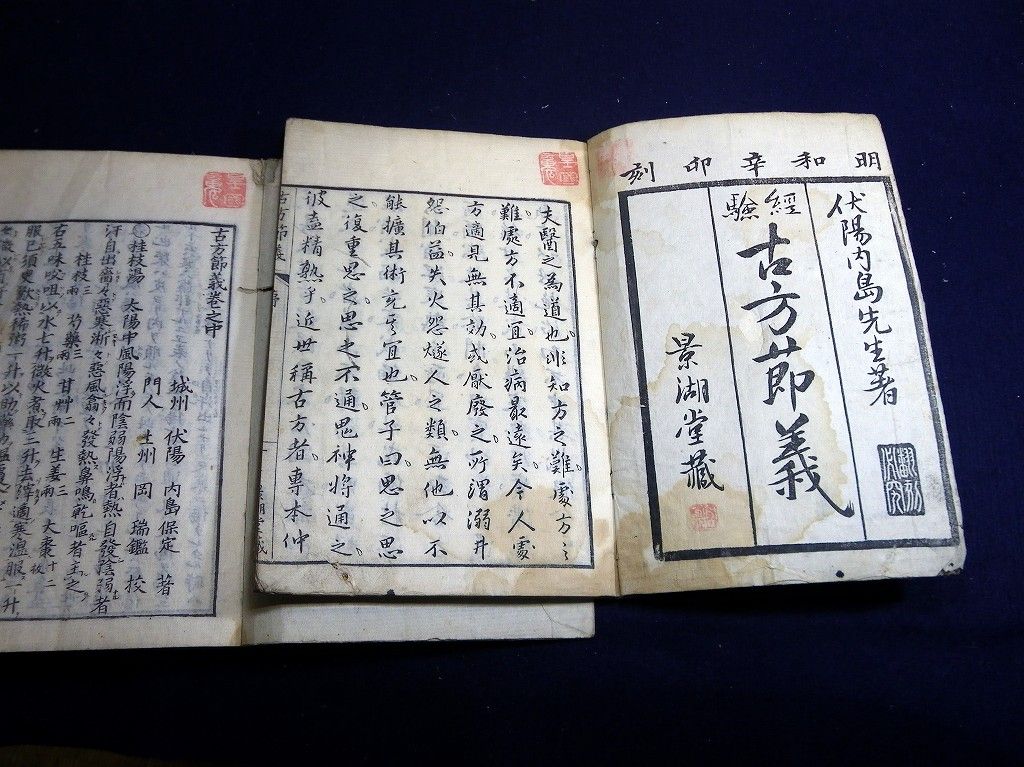 明和辛卯刻
伏陽内島先生著
經驗
古方節義
景湖堂藏
夫醫之為道也非知方之難處方之
難處方不適宜治病最遠矣今人處
方適見無其効或厭廢之所謂溺井
怨伯益失火怨燧人之類無他以不
能擴其術充其宜也管子曰思之思
之復重思之思之不通鬼神将通之
彼盡精熟乎近世稱古方者專本仲
古方節義
序
古方節義卷之中
城州 伏陽 内島保定 著
門人 土州 岡 瑞鑑 校
桂枝湯 太陽中風陽浮而陰弱陽浮者熱自發陰弱者
汗自出嗇々惡寒淅々惡風翕々發熱鼻鳴乾嘔者主之
桂枝三兩 芍藥三兩 甘艸二兩 生姜三兩 大棗十二枚
右五味㕮咀以水七升微火煮取三升去滓適寒温服一升
服已須臾歠熱稀粥一升以助藥力